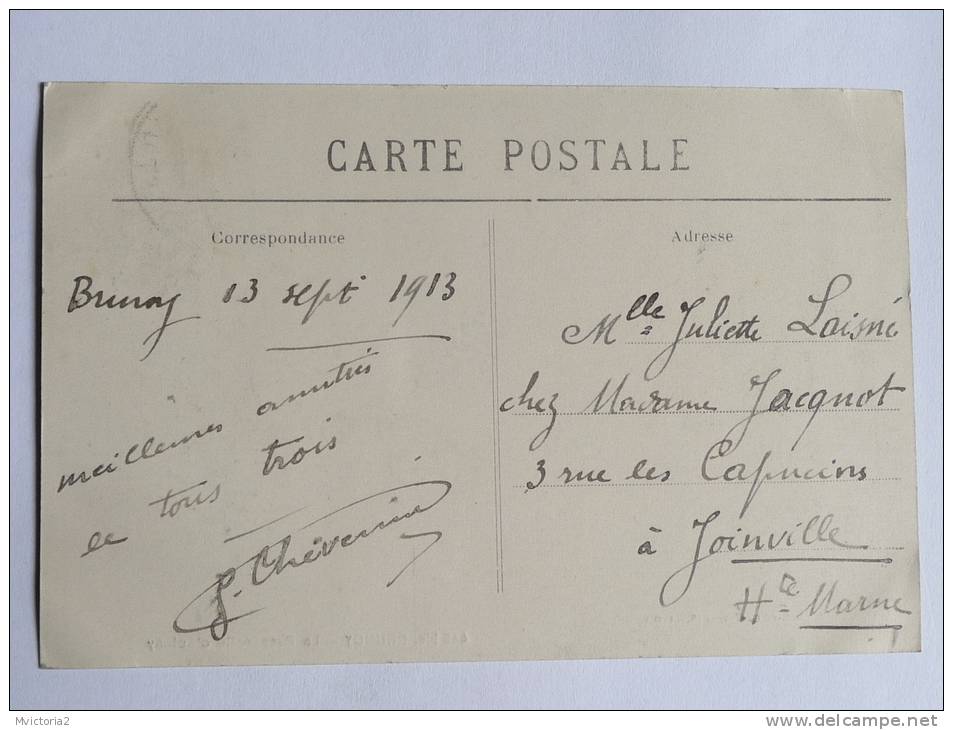 CARTE POSTALE
Correspondance
Brunoy 13 sept 1913
meilleures amitiés
de tous trois
Thévenin
Adresse
Mlle Juliette Laisné
chez Madame Jacquot
3 rue des Capucins
à Joinville
Hte Marne
Mvictoria2
www.delcampe.net